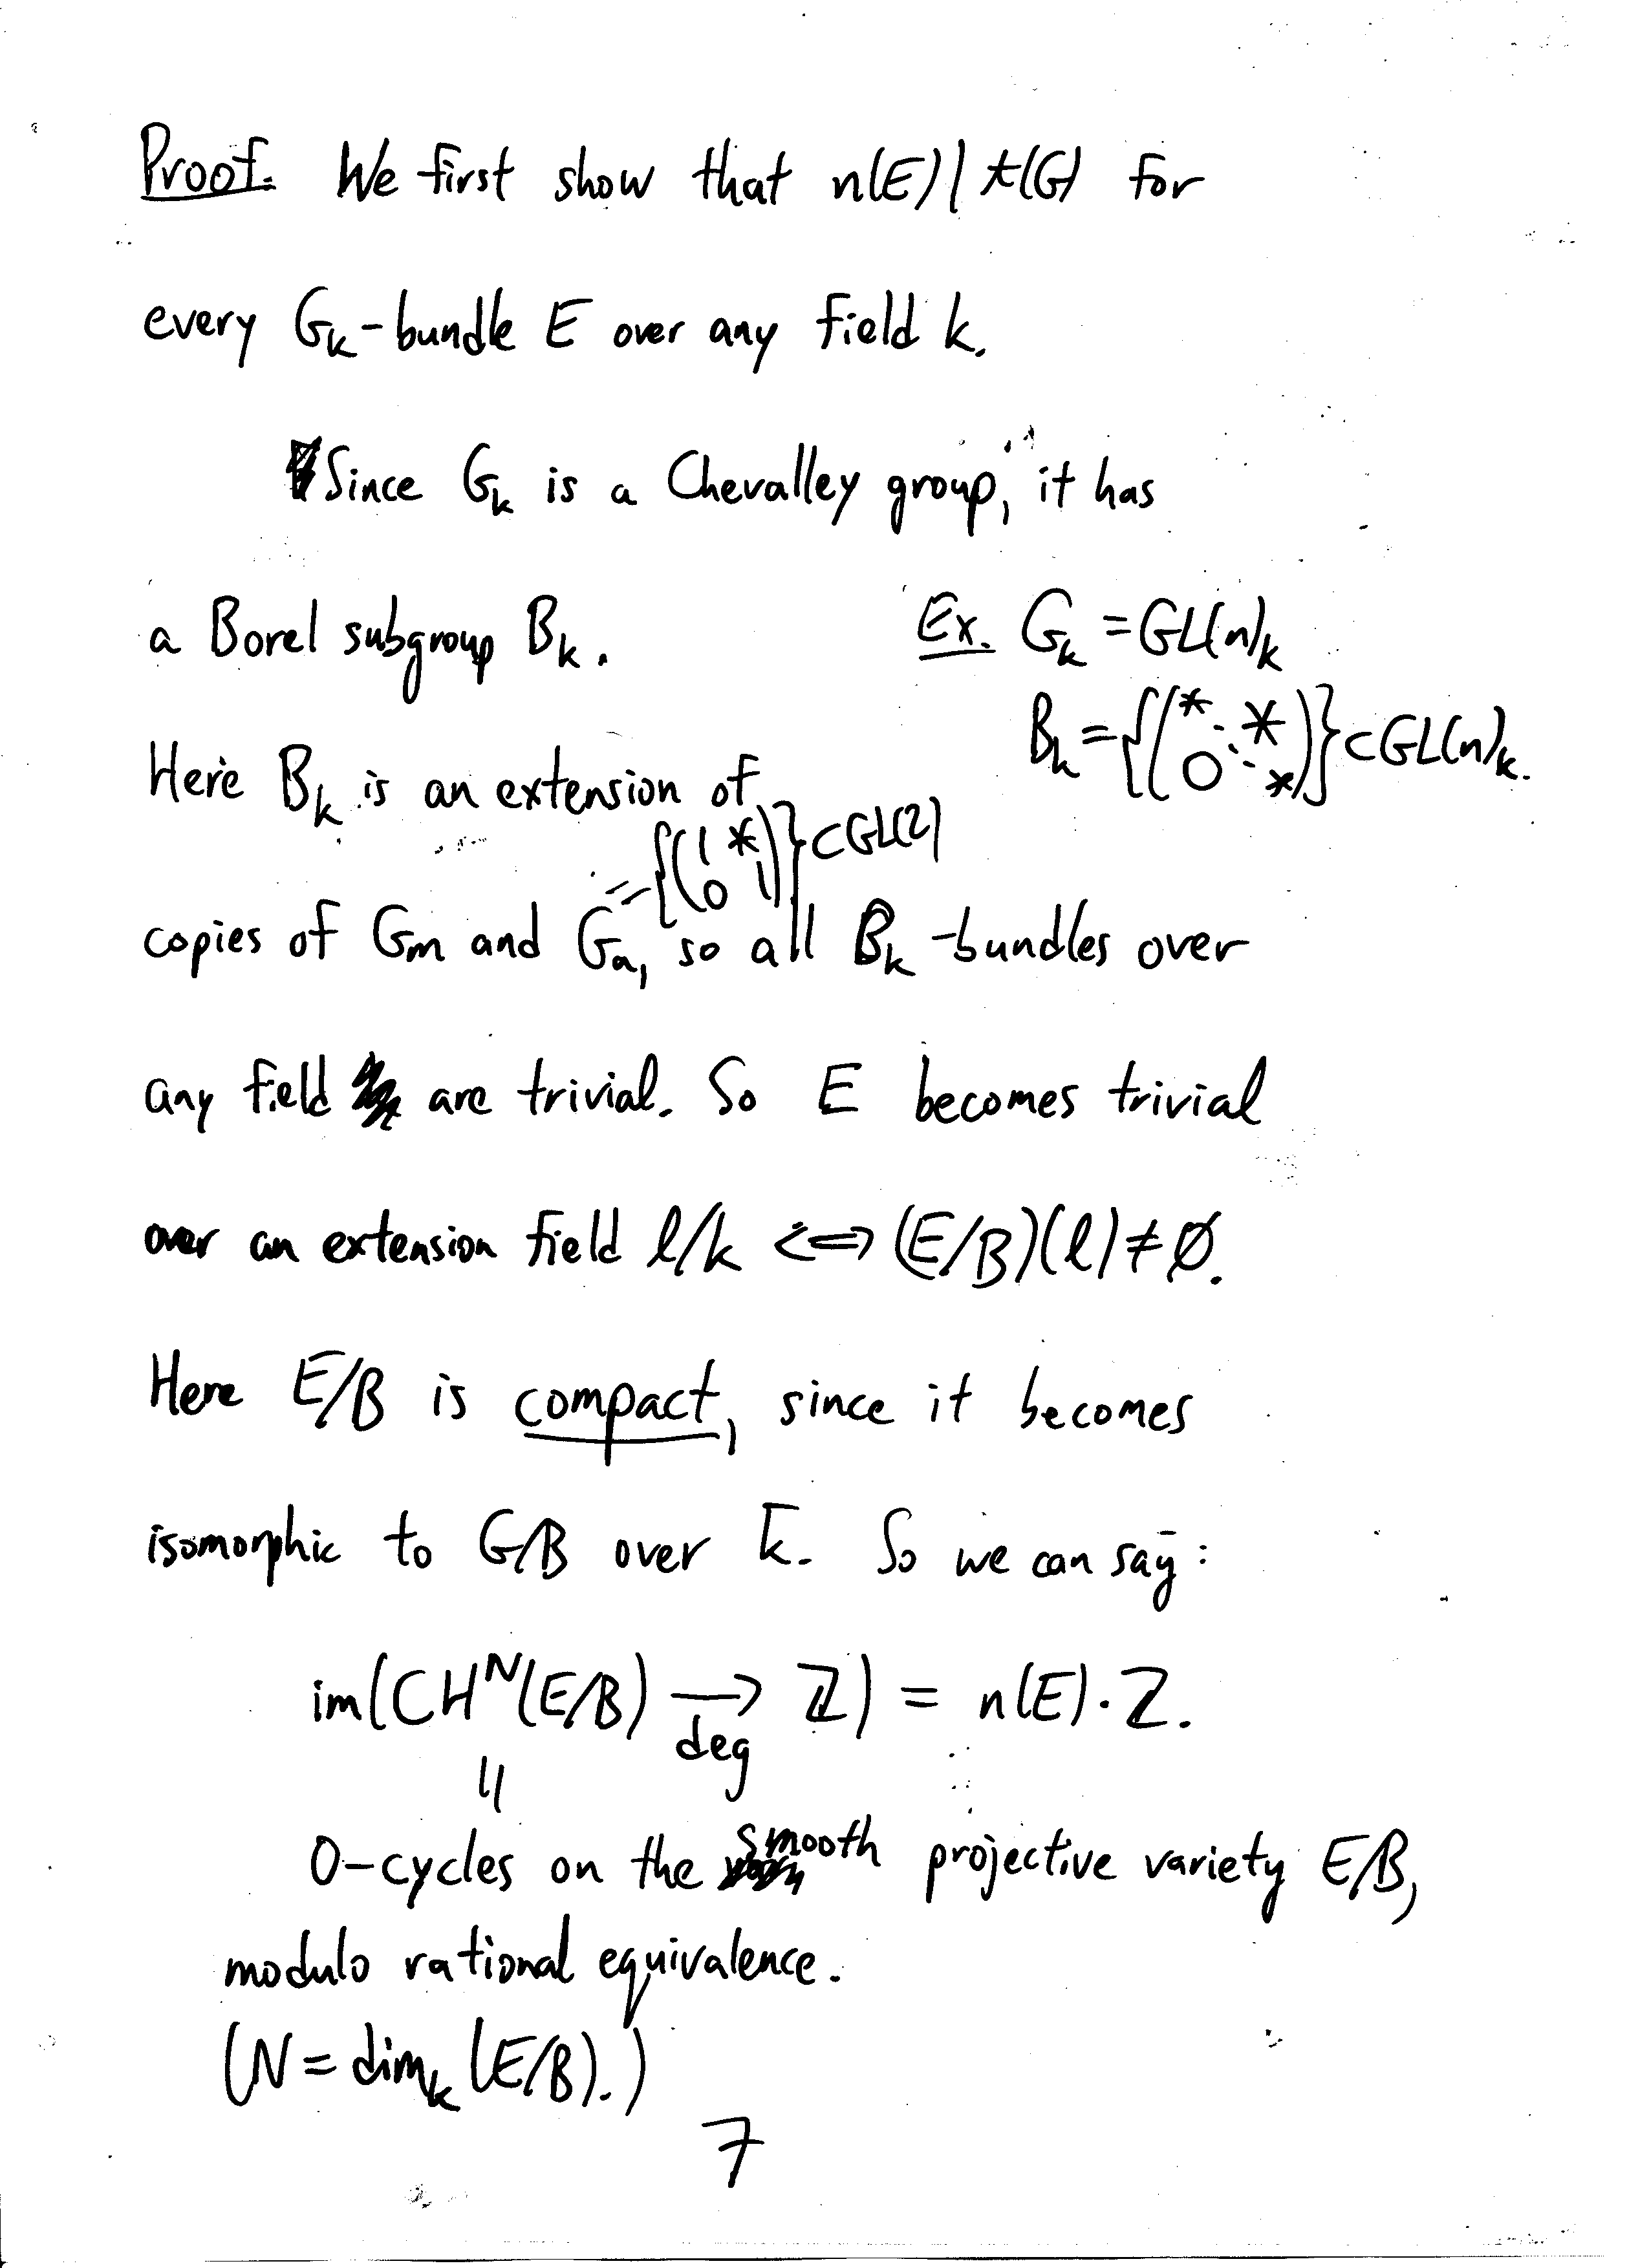 Proof. We first show that n(E) | t(G) for
every G_k-bundle E over any field k.
Since G_k is a Chevalley group, it has
a Borel subgroup B_k.
Ex. G_k = GL(n)_k
B_k = {(* ⋱ * 0 ⋱ *)} ⊂ GL(n)_k.
Here B_k is an extension of
= {(1 * 0 1)} ⊂ GL(2)
copies of G_m and G_a, so all B_k-bundles over
any field are trivial. So E becomes trivial
over an extension field l/k ⟺ (E/B)(l) ≠ ∅.
Here E/B is compact, since it becomes
isomorphic to G/B over k̄. So we can say:
im(CH^N(E/B) → ℤ) = n(E)·ℤ.
deg
||
0-cycles on the smooth projective variety E/B,
modulo rational equivalence.
(N = dim_k (E/B).)
7